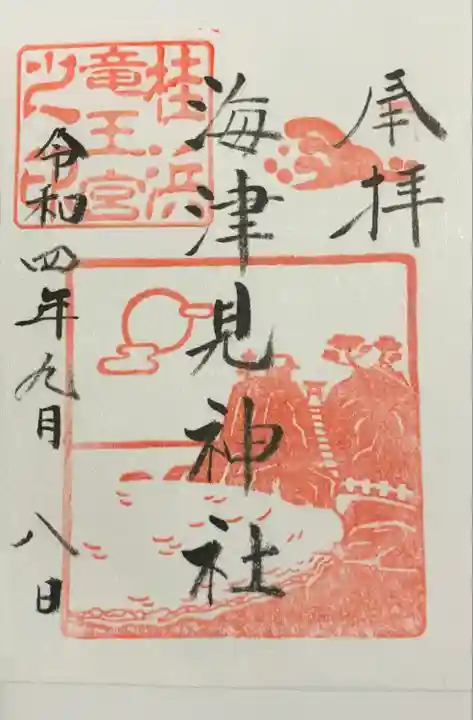 奉拝
海津見神社
令和四年九月 八日
桂浜
竜王宮
之印